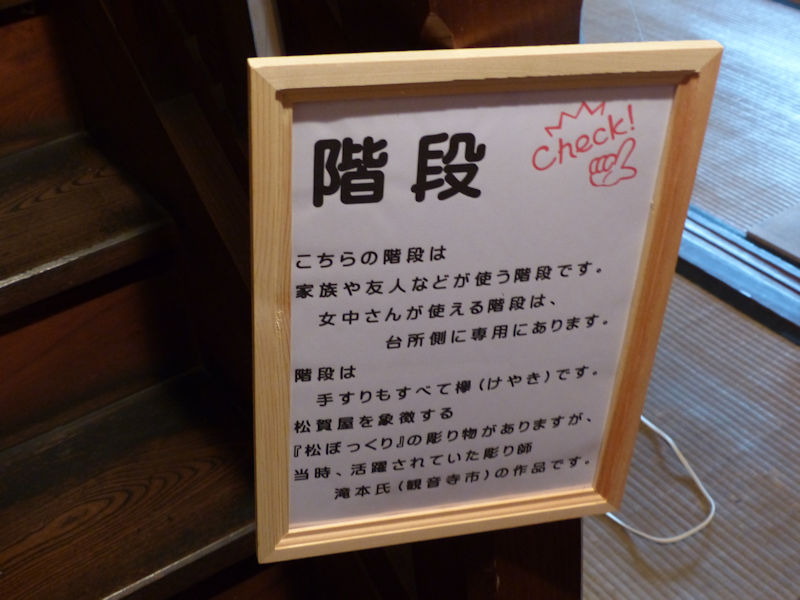 階段
Check!
こちらの階段は
家族や友人などが使う階段です。
女中さんが使える階段は、
台所側に専用にあります。
階段は
手すりもすべて欅(けやき)です。
松賀屋を象徴する
『松ぼっくり』の彫り物がありますが、
当時、活躍されていた彫り師
滝本氏(観音寺市)の作品です。